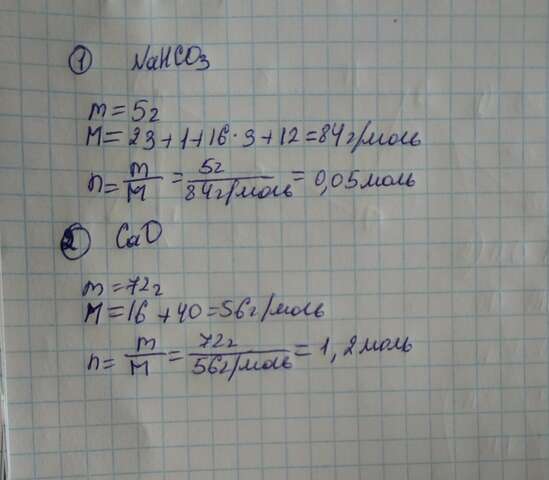 ① NaHCO₃
m = 5г
M = 23 + 1 + 16 · 3 + 12 = 84г/моль
n = m/M = 5г/84г/моль = 0,05моль
② CaO
m = 72г
M = 16 + 40 = 56г/моль
n = m/M = 72г/56г/моль = 1,2моль